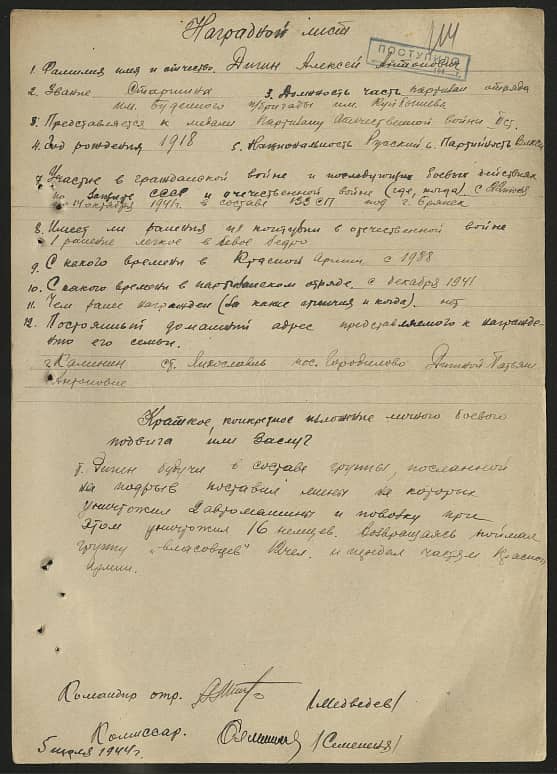 Наградной лист
ПОСТУПИЛО
1. Фамилия имя и отчество. Дитин Алексей Антонович
2. Звание Старшина 3. Должность часть партизан отряда
им. Буденного п/бригады им. Куйбышева
3. Представляется к медали Партизану Отечественной войны II ст.
4. Год рождения 1918 5. Национальность Русский 6. Партийность ВЛКСМ
7. Участие в гражданской войне и последующих боевых действиях
по СССР и отечественной войне (где, когда) с
по 14 октября 1941 г. в составе СП под г. Брянск
8. Имеет ли ранения и контузии в отечественной войне
1 ранение легкое в левое бедро
9. С какого времени в Красной Армии с 1938
10. С какого времени в партизанском отряде. с декабря 1941
11. Чем ранее награжден (за какие отличия и когда). нет
12. Постоянный домашний адрес представляемого к награжде-
нию его семьи.
г. Калинин ст. пос. Городилово
Антоновне
Краткое конкретное изложение личного боевого
подвига или заслуг
т. Дитин будучи в составе группы, посланной
на подрыв поставил мины на которых
уничтожил 2 автомашины и повозку при
этом уничтожил 16 немцев. Возвращаясь поймал
группу „власовцев" чел. и передал частям Красной
Армии.
Командир отр. /Медведев/
Комиссар. /Семененя/
5 июля 1944 г.